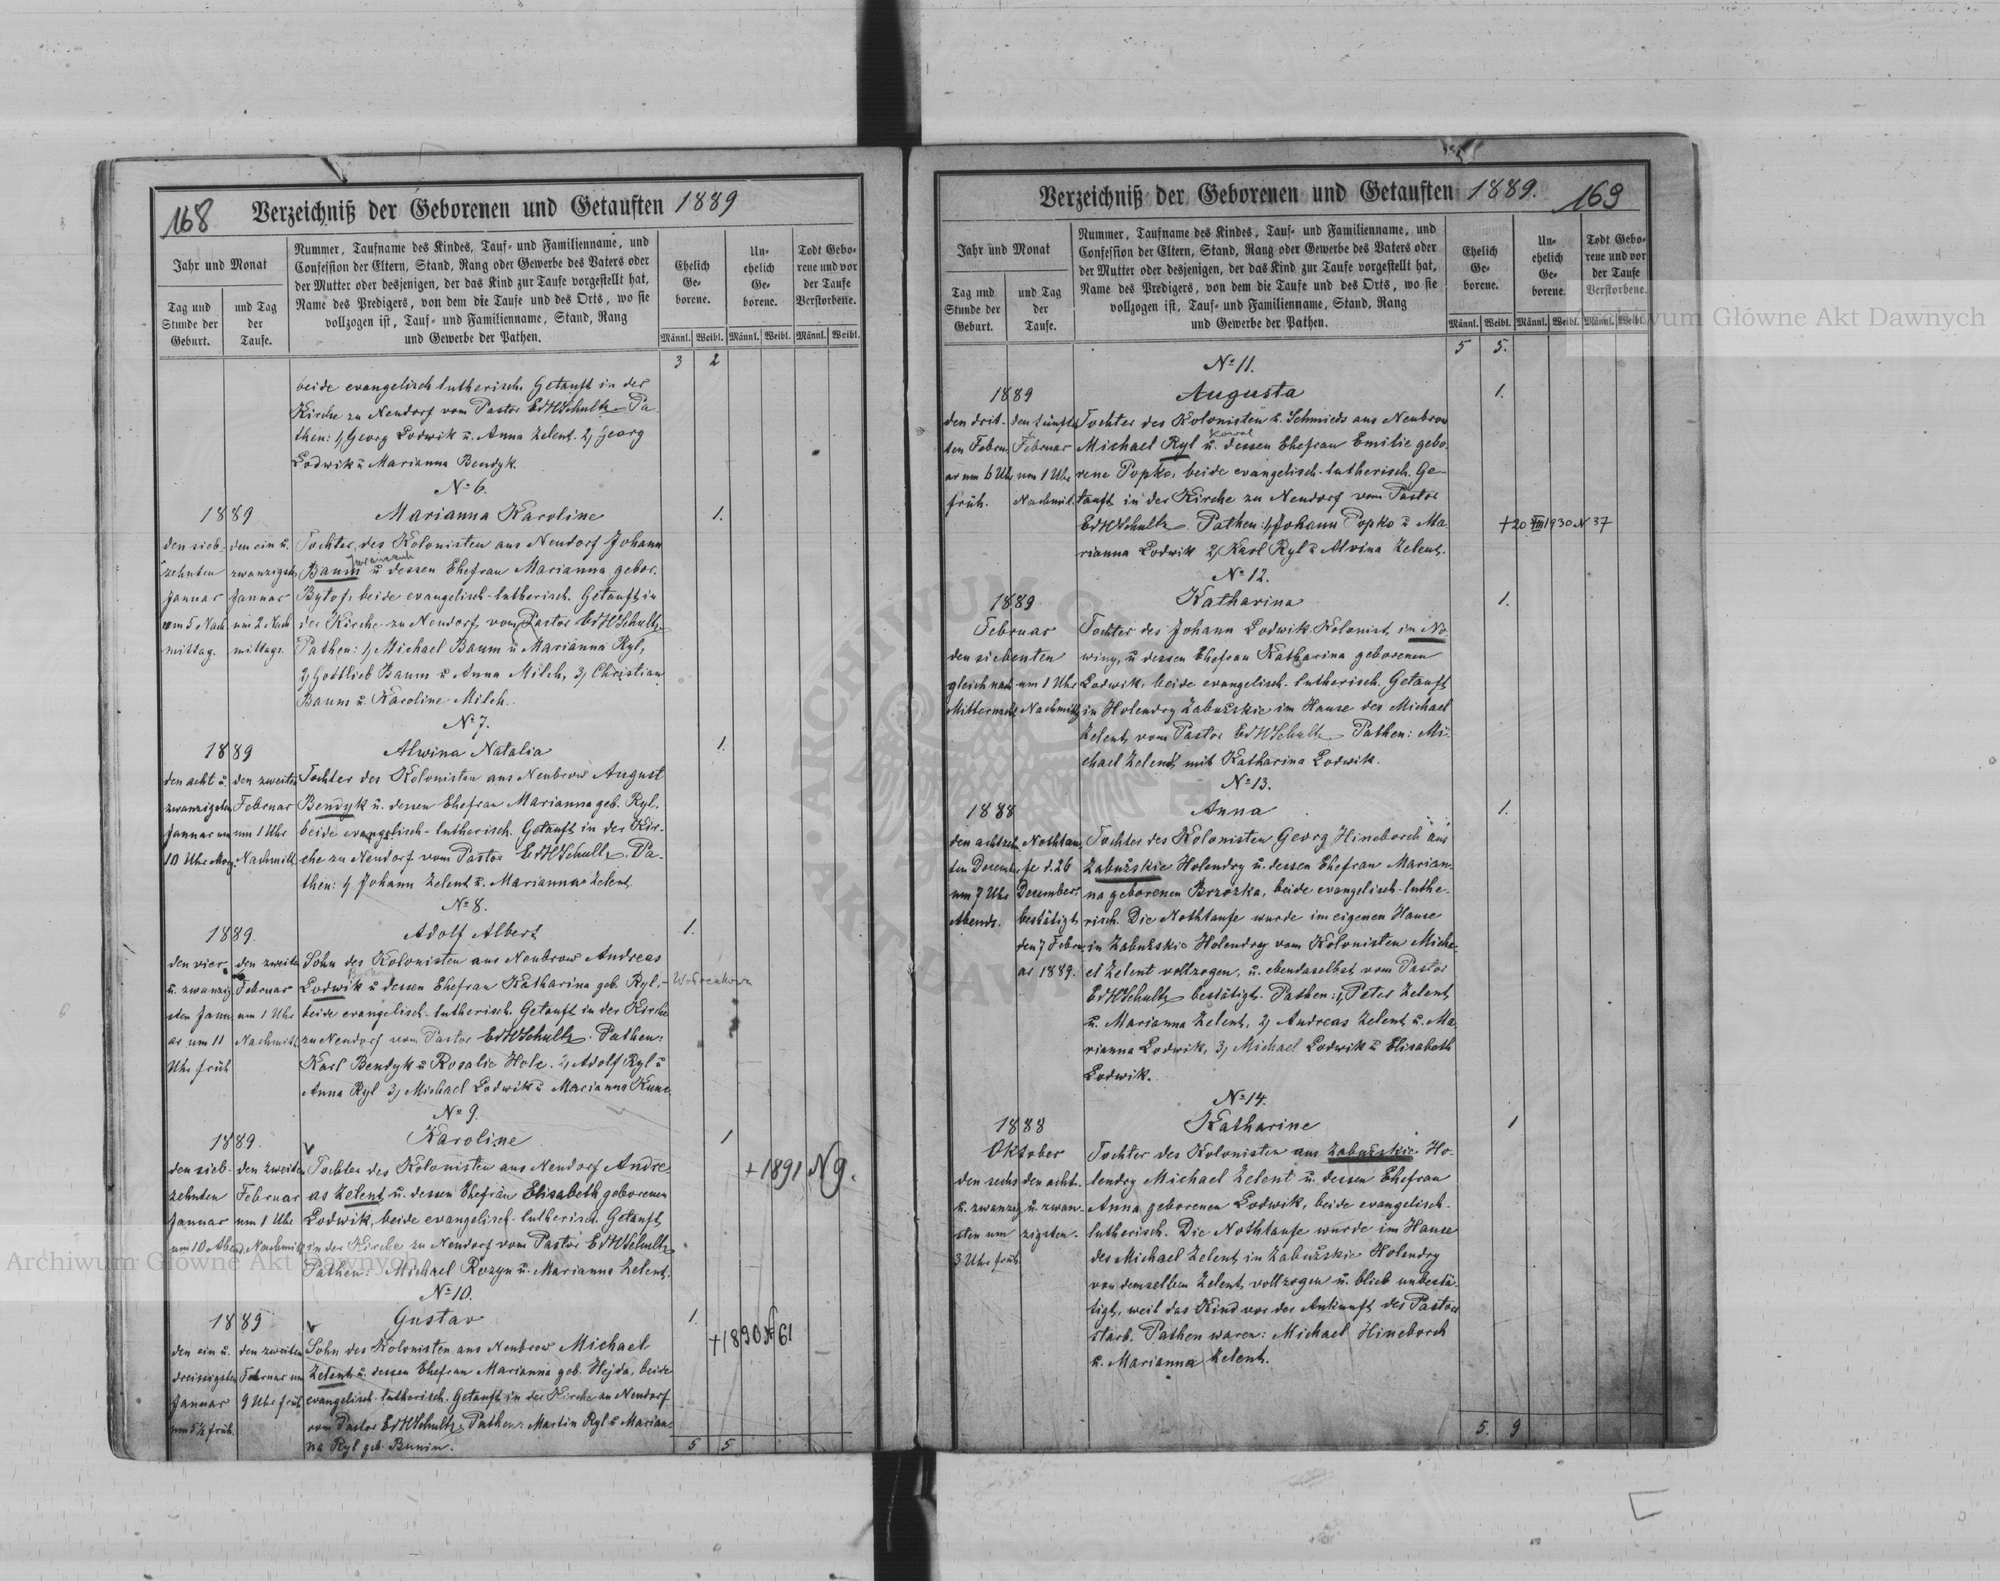 168 Verzeichniß der Geborenen und Getauften 1889
Jahr und Monat
Tag und Stunde der Geburt.
und Tag der Taufe.
Nummer, Taufname des Kindes, Tauf- und Familienname, und
Confession der Eltern, Stand, Rang oder Gewerbe des Vaters oder
der Mutter oder desjenigen, der das Kind zur Taufe vorgestellt hat,
Name des Predigers, von dem die Taufe und des Orts, wo sie
vollzogen ist, Tauf- und Familienname, Stand, Rang
und Gewerbe der Pathen.
Ehelich Geborene.
Unehelich Geborene.
Todt Geborene und vor der Taufe Verstorbene.
Männl. Weibl. Männl. Weibl. Männl. Weibl.
3 2
beide evangelisch lutherisch. Getauft in der
Kirche zu Neudorf vom Pastor EdHSchultz. Pa-
then: 1, Georg Lodwik u. Anna Zelent. 2, Georg
Lodwik u Marianna Bendyk.
No 6.
1889 Marianna Karoline 1.
den sieb-
zehnten
Januar
um 5 Nach
mittag.
den ein u.
zwanzigsten
Januar
um 2 Nach
mittags.
Tochter des Kolonisten aus Neudorf Johann
Baum u dessen Ehefrau Marianna gebor.
Bytof, beide evangelisch-lutherisch. Getauft in
der Kirche zu Neudorf vom Pastor EdHSchultz
Pathen: 1, Michael Baum u Marianna Ryl,
2, Gottlieb Baum u Anna Milch, 3, Christian
Baum u. Karoline Milch.
No 7.
1889 Alwina Natalia 1.
den acht u.
zwanzigsten
Januar um
10 Uhr Morg.
den zweiten
Februar
um 1 Uhr
Nachmitt.
Tochter des Kolonisten aus Neubrow August
Bendyk u. dessen Ehefrau Marianna geb. Ryl.
beide evangelisch-lutherisch. Getauft in der Kir-
che zu Neudorf vom Pastor EdHSchultz. Pa-
then: 1, Johann Zelent u. Marianna Zelent.
No 8.
1889. Adolf Albert 1.
den vier
u. zwanzig
sten Janu
ar um 11
Uhr früh
den zweiten
Februar
um 1 Uhr
Nachmitt.
Sohn des Kolonisten aus Neubrow Andreas
Lodwik u dessen Ehefrau Katharina geb. Ryl,
beide evangelisch-lutherisch. Getauft in der Kirche
zu Neudorf vom Pastor EdHSchultz. Pathen:
Karl Bendyk u Rosalie Hole. 2, Adolf Ryl u
Anna Ryl 3, Michael Lodwik u Marianna Kunc.
No 9.
1889. Karoline 1
den sieb-
zehnten
Januar
um 10 Abend
den zweiten
Februar
um 1 Uhr
Nachmitt
Tochter des Kolonisten aus Neudorf Andre-
as Zelent u. dessen Ehefrau Elisabeth geborenen
Lodwik, beide evangelisch-lutherisch. Getauft
in der Kirche zu Neudorf vom Pastor EdHSchultz
Pathen: Michael Rozyn u. Marianna Zelent.
+ 1891 N 9.
No 10.
1889 Gustav 1.
den ein u.
dreissigsten
Januar
um 5½ früh.
den zweiten
Februar um
9 Uhr früh
Sohn des Kolonisten aus Neubrow Michael
Zelent u. dessen Ehefrau Marianna geb. Hejda, beide
evangelisch-lutherisch. Getauft in der Kirche zu Neudorf
vom Pastor EdHSchultz. Pathen: Martin Ryl u Marian-
na Ryl geb. Bunin.
+ 1890 N 61
5 5
Verzeichniß der Geborenen und Getauften 1889. 169
Jahr und Monat
Tag und Stunde der Geburt.
und Tag der Taufe.
Nummer, Taufname des Kindes, Tauf- und Familienname, und
Confession der Eltern, Stand, Rang oder Gewerbe des Vaters oder
der Mutter oder desjenigen, der das Kind zur Taufe vorgestellt hat,
Name des Predigers, von dem die Taufe und des Orts, wo sie
vollzogen ist, Tauf- und Familienname, Stand, Rang
und Gewerbe der Pathen.
Ehelich Geborene.
Unehelich Geborene.
Todt Geborene und vor der Taufe Verstorbene.
Männl. Weibl. Männl. Weibl. Männl. Weibl.
5 5.
No 11.
1889 Augusta 1.
den drit-
ten Febru
ar um 6 Uhr
früh.
den fünften
Februar
um 1 Uhr
Nachmit.
Tochter des Kolonisten u. Schmieds aus Neubrow
Kowal
Michael Ryl u. dessen Ehefrau Emilie gebo-
rene Popko, beide evangelisch-lutherisch. Ge-
tauft in der Kirche zu Neudorf vom Pastor
EdHSchultz. Pathen: 1, Johann Popko u Ma
rianna Lodwik 2, Karl Ryl u Alvina Zelent.
+ 20 VIII 1930 N 37
No 12.
1889 Katharina 1.
Februar
den siebenten
gleich nach
Mitternacht
um 1 Uhr
Nachmittg
Tochter des Johann Lodwik Kolonist in No
winy, u dessen Ehefrau Katharina geborenen
Lodwik, beide evangelisch-lutherisch. Getauft
in Holendry Zabužskie im Hause des Michael
Zelent vom Pastor EdHSchultz. Pathen: Mi-
chael Zelent mit Katharina Lodwik.
No 13.
1888 Anna 1.
den achtzehn
ten Decemb
um 7 Uhr
Abends.
Nothtau
fe d. 26
Decembers
bestätigt
den 7 Febru
ar 1889.
Tochter des Kolonisten Georg Hineborch aus
Zabužskie Holendry u. dessen Ehefrau Marian-
na geborenen Brzózka, beide evangelisch-luthe-
risch. Die Nothtaufe wurde im eigenen Hause
in Zabužskie Holendry vom Kolonisten Micha-
el Zelent vollzogen, u. ebendaselbst vom Pastor
EdHSchultz bestätigt. Pathen: 1, Peter Zelent
u. Marianna Zelent, 2, Andreas Zelent u. Ma
rianna Lodwik, 3, Michael Lodwik u Elisabeth
Lodwik.
No 14.
1888 Katharine 1
Oktober
den sechs
u. zwanzig
sten um
3 Uhr früh
den acht-
u. zwan-
zigsten.
Tochter des Kolonisten aus Zabužskie Ho-
lendry Michael Zelent u. dessen Ehefrau
Anna geborenen Lodwik, beide evangelisch-
lutherisch. Die Nothtaufe wurde im Hause
des Michael Zelent in Zabužskie Holendry
von demselben Zelent vollzogen u. blieb unbestä-
tigt, weil das Kind vor der Ankunft des Pastors
starb. Pathen waren: Michael Hineborch
u. Marianna Zelent.
5. 9
Archiwum Główne Akt Dawnych
Archiwum Główne Akt Dawnych